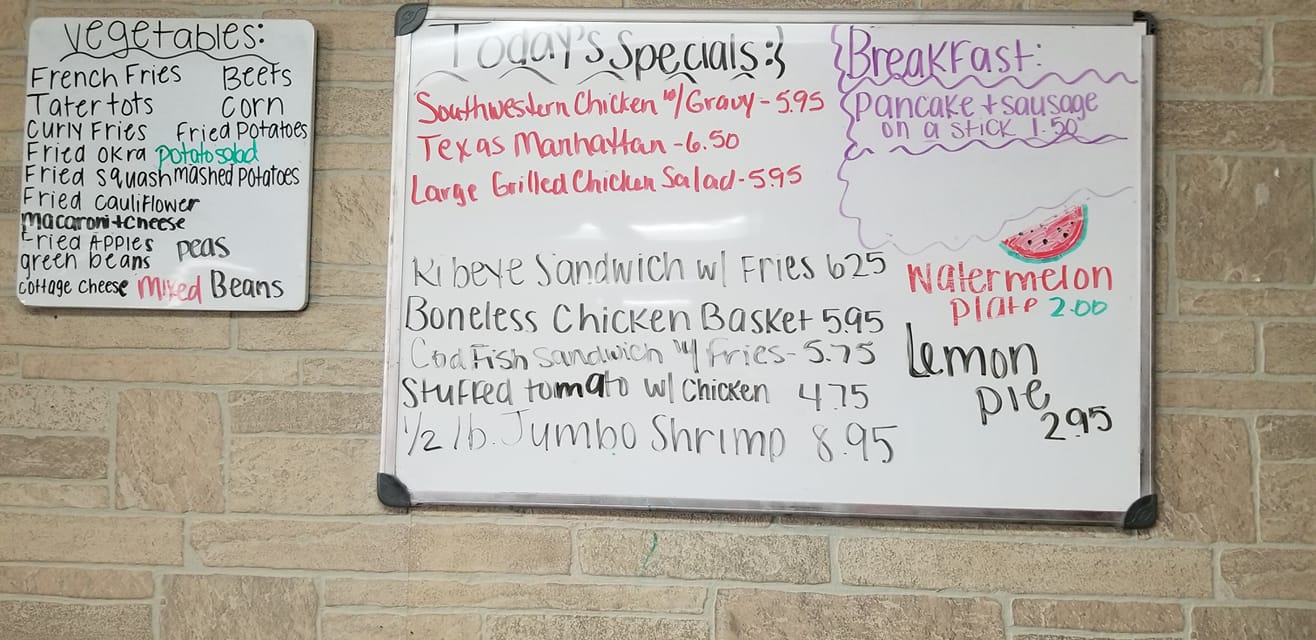 Vegetables:
French Fries Beets
Tater tots Corn
Curly Fries Fried Potatoes
Fried Okra potato salad
Fried Squash mashed potatoes
Fried Cauliflower
macaroni + cheese
Fried Apples peas
green beans
cottage cheese mixed Beans
Today's Specials:}
Southwestern Chicken w/ Gravy - 5.95
Texas Manhattan - 6.50
Large Grilled Chicken Salad - 5.95
Ribeye Sandwich w/ Fries 625
Boneless Chicken Basket 5.95
Cod Fish Sandwich w/ fries - 5.75
Stuffed tomato w/ Chicken 4.75
1/2 lb. Jumbo Shrimp 8.95
Breakfast:
Pancake + sausage
on a stick 1.50
Watermelon
plate 2.00
Lemon
pie
2.95